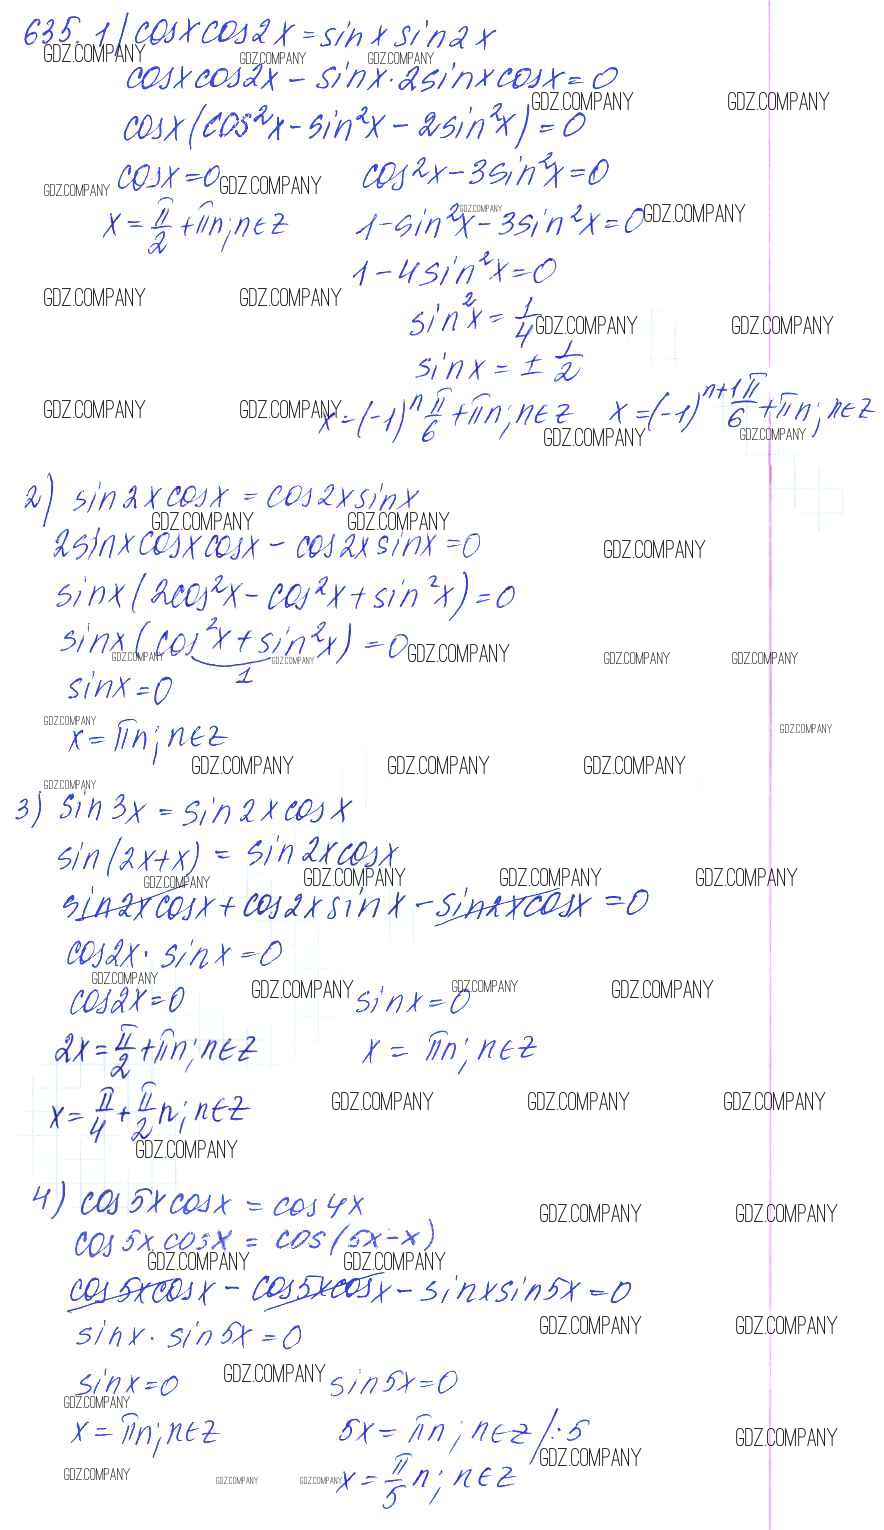 635. 1) cosx cos2x = sinx sin2x
cosx cos2x - sinx · 2sinx cosx = 0
cosx(cos²x - sin²x - 2sin²x) = 0
cosx = 0 cos²x - 3sin²x = 0
x = π/2 + πn; n∈Z 1 - sin²x - 3sin²x = 0
1 - 4sin²x = 0
sin²x = 1/4
sinx = ± 1/2
x = (-1)ⁿ π/6 + πn; n∈Z x = (-1)ⁿ⁺¹ π/6 + πn; n∈Z
2) sin2x cosx = cos2x sinx
2sinx cosx cosx - cos2x sinx = 0
sinx(2cos²x - cos²x + sin²x) = 0
sinx(cos²x + sin²x) = 0
1
sinx = 0
x = πn; n∈Z
3) sin3x = sin2x cosx
sin(2x+x) = sin2x cosx
sin2x cosx + cos2x sinx - sin2x cosx = 0
cos2x · sinx = 0
cos2x = 0 sinx = 0
2x = π/2 + πn; n∈Z x = πn; n∈Z
x = π/4 + π/2 n; n∈Z
4) cos5x cosx = cos4x
cos5x cosx = cos(5x-x)
cos5x cosx - cos5x cosx - sinx sin5x = 0
sinx · sin5x = 0
sinx = 0 sin5x = 0
x = πn; n∈Z 5x = πn; n∈Z /:5
x = π/5 n; n∈Z
GDZ.COMPANY